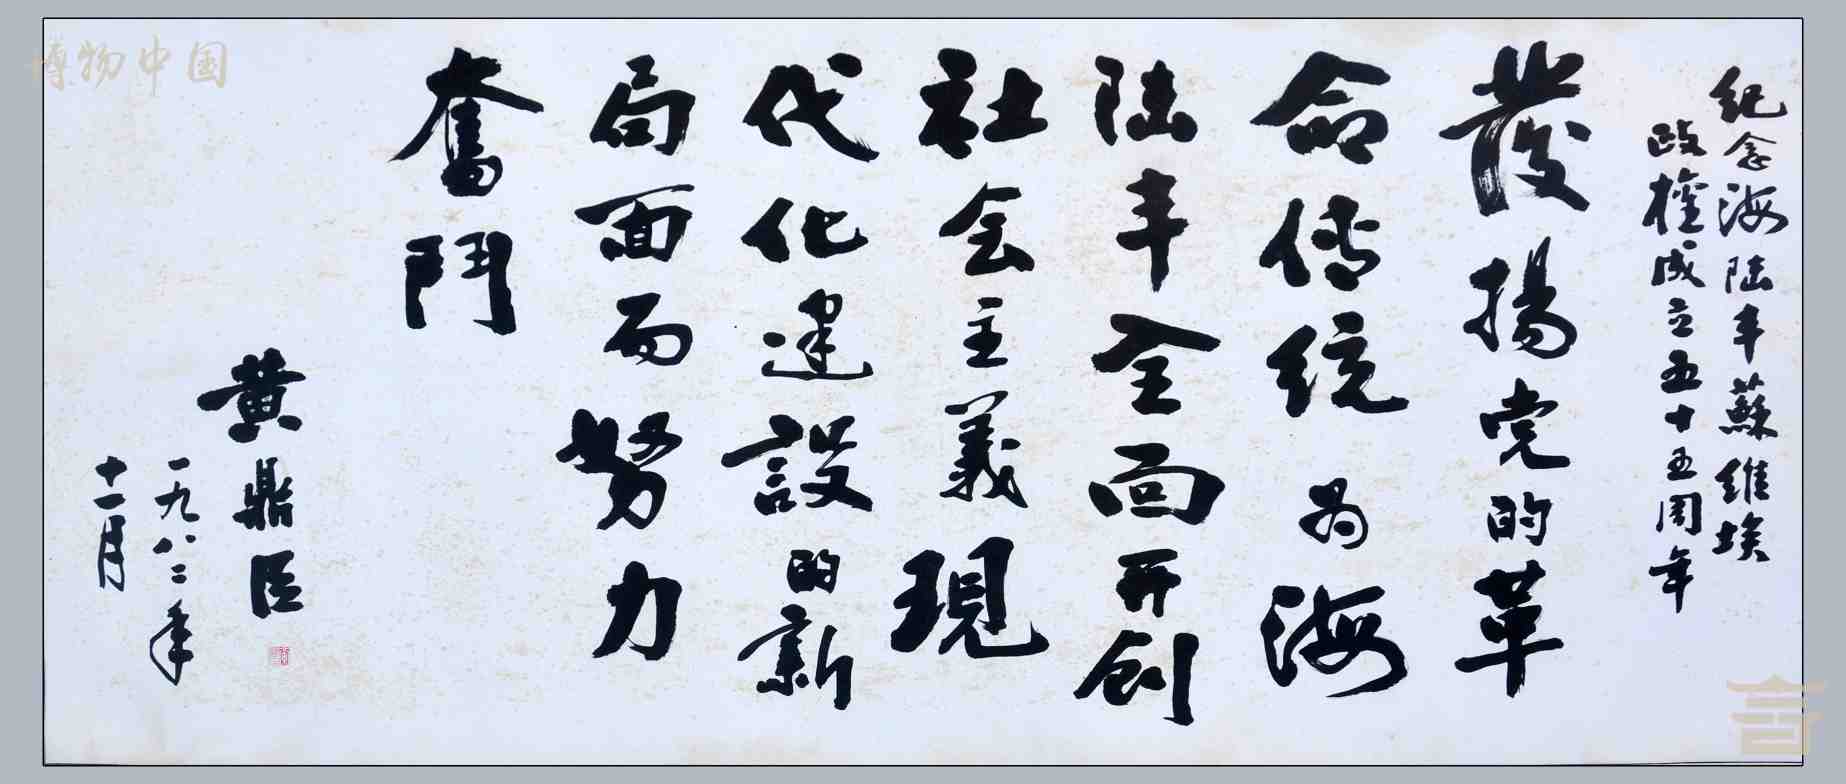 纪念海陆丰蘇維埃
政權成立五十五周年
發揚党的革
命传统为海
陆丰全面开创
社会主義現
代化建設的新
局面而努力
奮鬥
黄鼎臣
一九八二年
十一月
博物中国